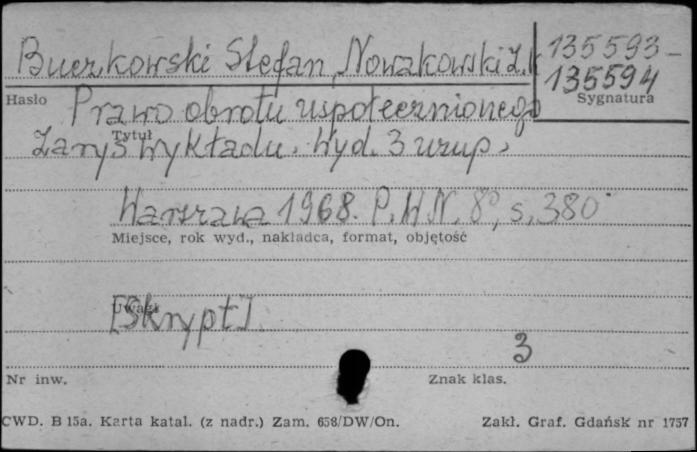 Buczkowski Stefan, Nowakowski Z. K.
135593-
135594
Hasło
Sygnatura
Prawo obrotu uspołecznionego
Tytuł
Zarys wykładu. Wyd. 3 uzup.
Warszawa 1968. P.W.N. 8°, s. 380
Miejsce, rok wyd., nakładca, format, objętość
Uwagi
[Skrypt].
3
Nr inw.
Znak klas.
CWD. B 15a. Karta katal. (z nadr.) Zam. 658/DW/On.
Zakł. Graf. Gdańsk nr 1757